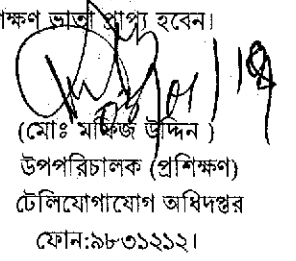 ক্ষণ ভাতা প্রাপ্য হবেন।
(মোঃ মফিজ উদ্দিন )
উপপরিচালক (প্রশিক্ষণ)
টেলিযোগাযোগ অধিদপ্তর
ফোন:৯৮৩১২১২।